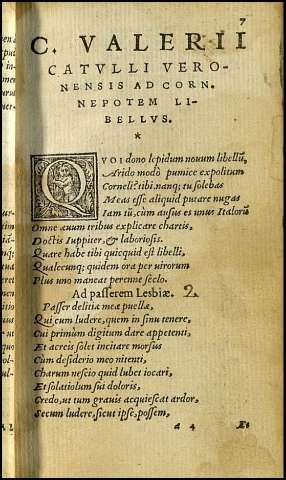 7
C. VALERII
CATVLLI VERO-
NENSIS AD CORN.
NEPOTEM LI-
BELLVS.
*
QVOI dono lepidum nouum libellũ,
Arido modò pumice expolitum
Corneli? tibi. nanq; tu solebas
Meas esse aliquid putare nugas
Iam tũ, cum ausus es unus Italorũ
Omne æuum tribus explicare chartis,
Doctis Iuppiter, & laboriosis.
Quare habe tibi quicquid est libelli,
Qualecunq; quidem ora per uirorum
Plus uno maneat perenne seclo.
Ad passerem Lesbiæ. 2.
Passer delitiæ meæ puellæ,
Qui cum ludere, quem in sinu tenere,
Cui primum digitum dare appetenti,
Et acreis solet incitare morsus
Cum desiderio meo nitenti,
Charum nescio quid lubet iocari,
Et solatiolum sui doloris,
Credo, ut tum grauis acquiescat ardor,
Tecum ludere, sicut ipse, possem,
a 4 Et